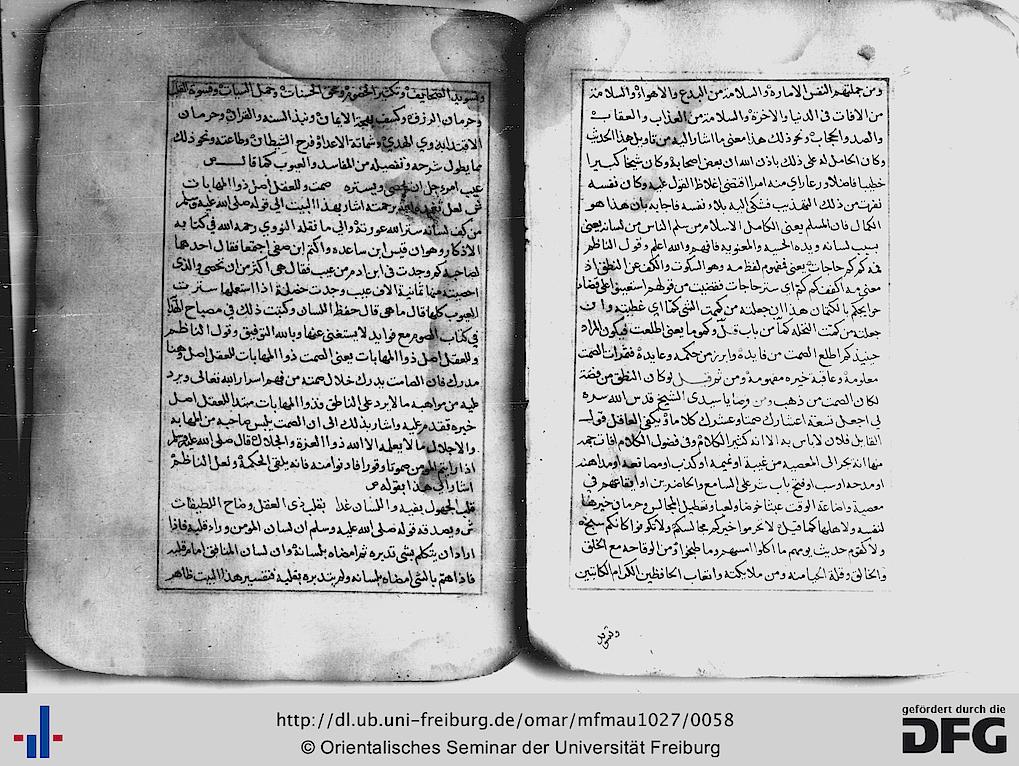 ومن جملتهم النفس الامارة والسلامة من البدع والاهواء والسلامة
من الافات في الدنيا والاخرة والسلامة من العذاب والعقاب
والصد والحجاب ونحو ذلك هذا معنى ما اشار اليه من تاويل هذا الحديث
وكان الحامل له على ذلك باذن الله ان بعض اصحابه وكان شيخا كبيرا
خطيبا فاضلا ورعا راى منه امرا اقتضى اغلاظ القول عليه وكان نفسه
نفرت من ذلك التهذيب فشكى اليه بلاء نفسه فاجابه بان هذا هو
الكمال فان المسلم يعنى الكامل الاسلام من سلم الناس من لسانه يعنى
بسبب لسانه ويده الحسية والمعنوية فافهم والله اعلم وقول الناظم
فه كم كم حاجات يعنى فمفهوم لفظ مه وهو السكوت والكف عن النطق اذ
معنى مه اكفف كم كم اى ستر حاجات فقضيت من قولهم استعينوا على قضاء
حوايجكم بالكتمان هذا ان جعلته من كممت الشئ كما اى غطيته وان
جعلته من كمت النخلة كما من باب قل وكموما يعنى اطلعت فيكون المراد
حينئذ كم اطلع الصمت من فايدة وابرز من حكمة وعايدة فثمرات الصمت
معلومة وعاقبة خيره مفهومة ومن ثم قيل لو كان النطق من فضة
لكان الصمت من ذهب ومن وصايا سيدى الشيخ قدس الله سره
لى اجعل تسعة اعشارك صمتا وعشرك كلاما ويكفى العاقل قول
القايل فلان لا باس به الا انه كثير الكلام وفى فضول الكلام افات جمة
منها انه يجر الى المعصية من غيبة او نميمة او كذب او مصانعة او مداهنة
او مدحه او سب او فتح باب شر على السامع والحاضرين او ايقاعهم في
معصية واضاعة الوقت عبثا خوضا ولعبا وتعطيل المجالس وحرمان خيرها
لنفسه ولاهلها كما قيل لا تحرموا خيركم مجالسكم ولا تكونوا كانكم سبخه
ولا كقوم حديث يومهم ما اكلوا امسهم وما طبخوا ومن الوقاحة مع الخلق
والخالق وقلة الحيا منه ومن ملايكته واتعاب الحافظين الكرام الكاتبين
وتسويد
وتسويد الصحايف وتكثير الخصوم ومحق الحسنات وحمل السيات وقسوة القلب
وحرمان الرزق وكسف بهجة الايمان ونبذ السنه والقران وحرمان
الاقتدا بذوى الهدى وشماتة الاعدا وفرح الشيطان وطاعته ونحو ذلك
مما يطول شرحه وتفصيله من المفاسد والعيوب كما قال ص
عيب امرء جل ان يحصى ويستره صمت وللعقل اصل ذوا المهابات
ش لعل تغمده الله برحمته اشار بهذا البيت الى قوله صلى الله عليه وسلم
من كف لسانه ستر الله عورته والى ما نقله النووى رحمه الله في كتابه
الاذكار وهو ان قيس ابن ساعده واكثم ابن صفى اجتمعا فقال احدهما
لصاحبه كم وجدت في ابن ادم من عيب فقال هى اكثر من ان تحصى والذى
احصيته منها ثمانية الاف عيب ووجدت خصلة اذا استعملها سترت
العيوب كلها قال ما هى قال حفظ اللسان وكتبت ذلك في مصباح
في كتاب الصوم مع فوايد لا يستغنى عنها وبالله التوفيق وقول الناظم
وللعقل اصل ذوا المهابات يعنى الصمت ذوا المهابات للعقل اصل وهنا
مدرك فان الصامت يدرك خلال صمته من فهم اسرار الله تعالى ويرد
عليه من مواهبه ما لا يرد على الناطق فذوا المهابات مبتدا للعقل اصل
خبره فقدم عليه واشار بذلك الى ان الصمت يلبس صاحبه من المهابه
والاجلال ما لا يعلمه الا الله ذوا العزة والجلال قال صلى الله عليه وسلم
اذا رايتم المومن صموتا وقورا فادنوا منه فانه يلقى الحكمة ولعل الناظم
اشار الى هذا بقوله ص
قلب الجهول بفيه واللسان غدا بقلب ذى العقل وضاح اللطيفات
ش ويصدقه قوله صلى الله عليه وسلم ان لسان المومن وراء قلبه فاذا
اراد ان يتكلم بشى تدبره ثم امضاه بلسانه وان لسان المنافق امام قلبه
فاذا هم بالشى امضاه بلسانه ولم يتدبره بقلبه فتفسير هذا البيت ظاهر
http://dl.ub.uni-freiburg.de/omar/mfmau1027/0058
© Orientalisches Seminar der Universität Freiburg
gefördert durch die
DFG